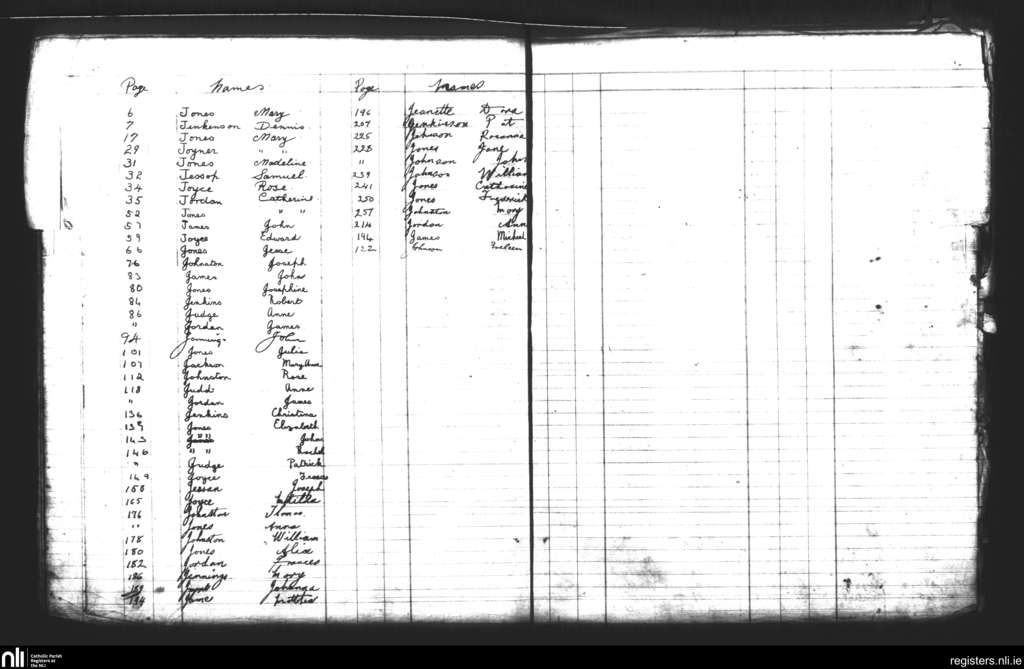 Page Names
6 Jones Mary
7 Jenkenson Dennis
17 Jones Mary
29 Joyner " "
31 Jones Madeline
32 Jessop Samuel
34 Joyce Rose
35 Jordan Catherine
52 Jones " "
57 James John
59 Joyce Edward
66 Jones Jesse
76 Johnston Joseph
83 James John
80 Jones Josephine
84 Jenkins Robert
86 Judge Anne
" Jordan James
94 Jennings John
101 Jones Julia
107 Jackson Mary Anne
112 Johnston Rose
118 Judd Anne
" Jordan James
136 Jenkins Christina
139 Jones Elizabeth
143 " " John
146 " " Rachel
" Judge Patrick
149 Joyce
158 Joseph
165 Joyce Matilda
176
" Jones Anna
178 Johnston William
180 Jones Alice
182 Jordan Frances
186 Jennings Mary
189 Johanna
194 Jane
Page Names
196 Jeanette Dora
207 Jenkinson Pat
225 Johnson Rosanna
228 Jones Jane
" Johnson John
239 Johnson William
241 Jones Catharine
250 Jones Frederick
257 Johnston Mary
214 Jordan Ann
194 James Michael
122 Johnson
nli Catholic Parish
Registers at
the NLI
registers.nli.ie